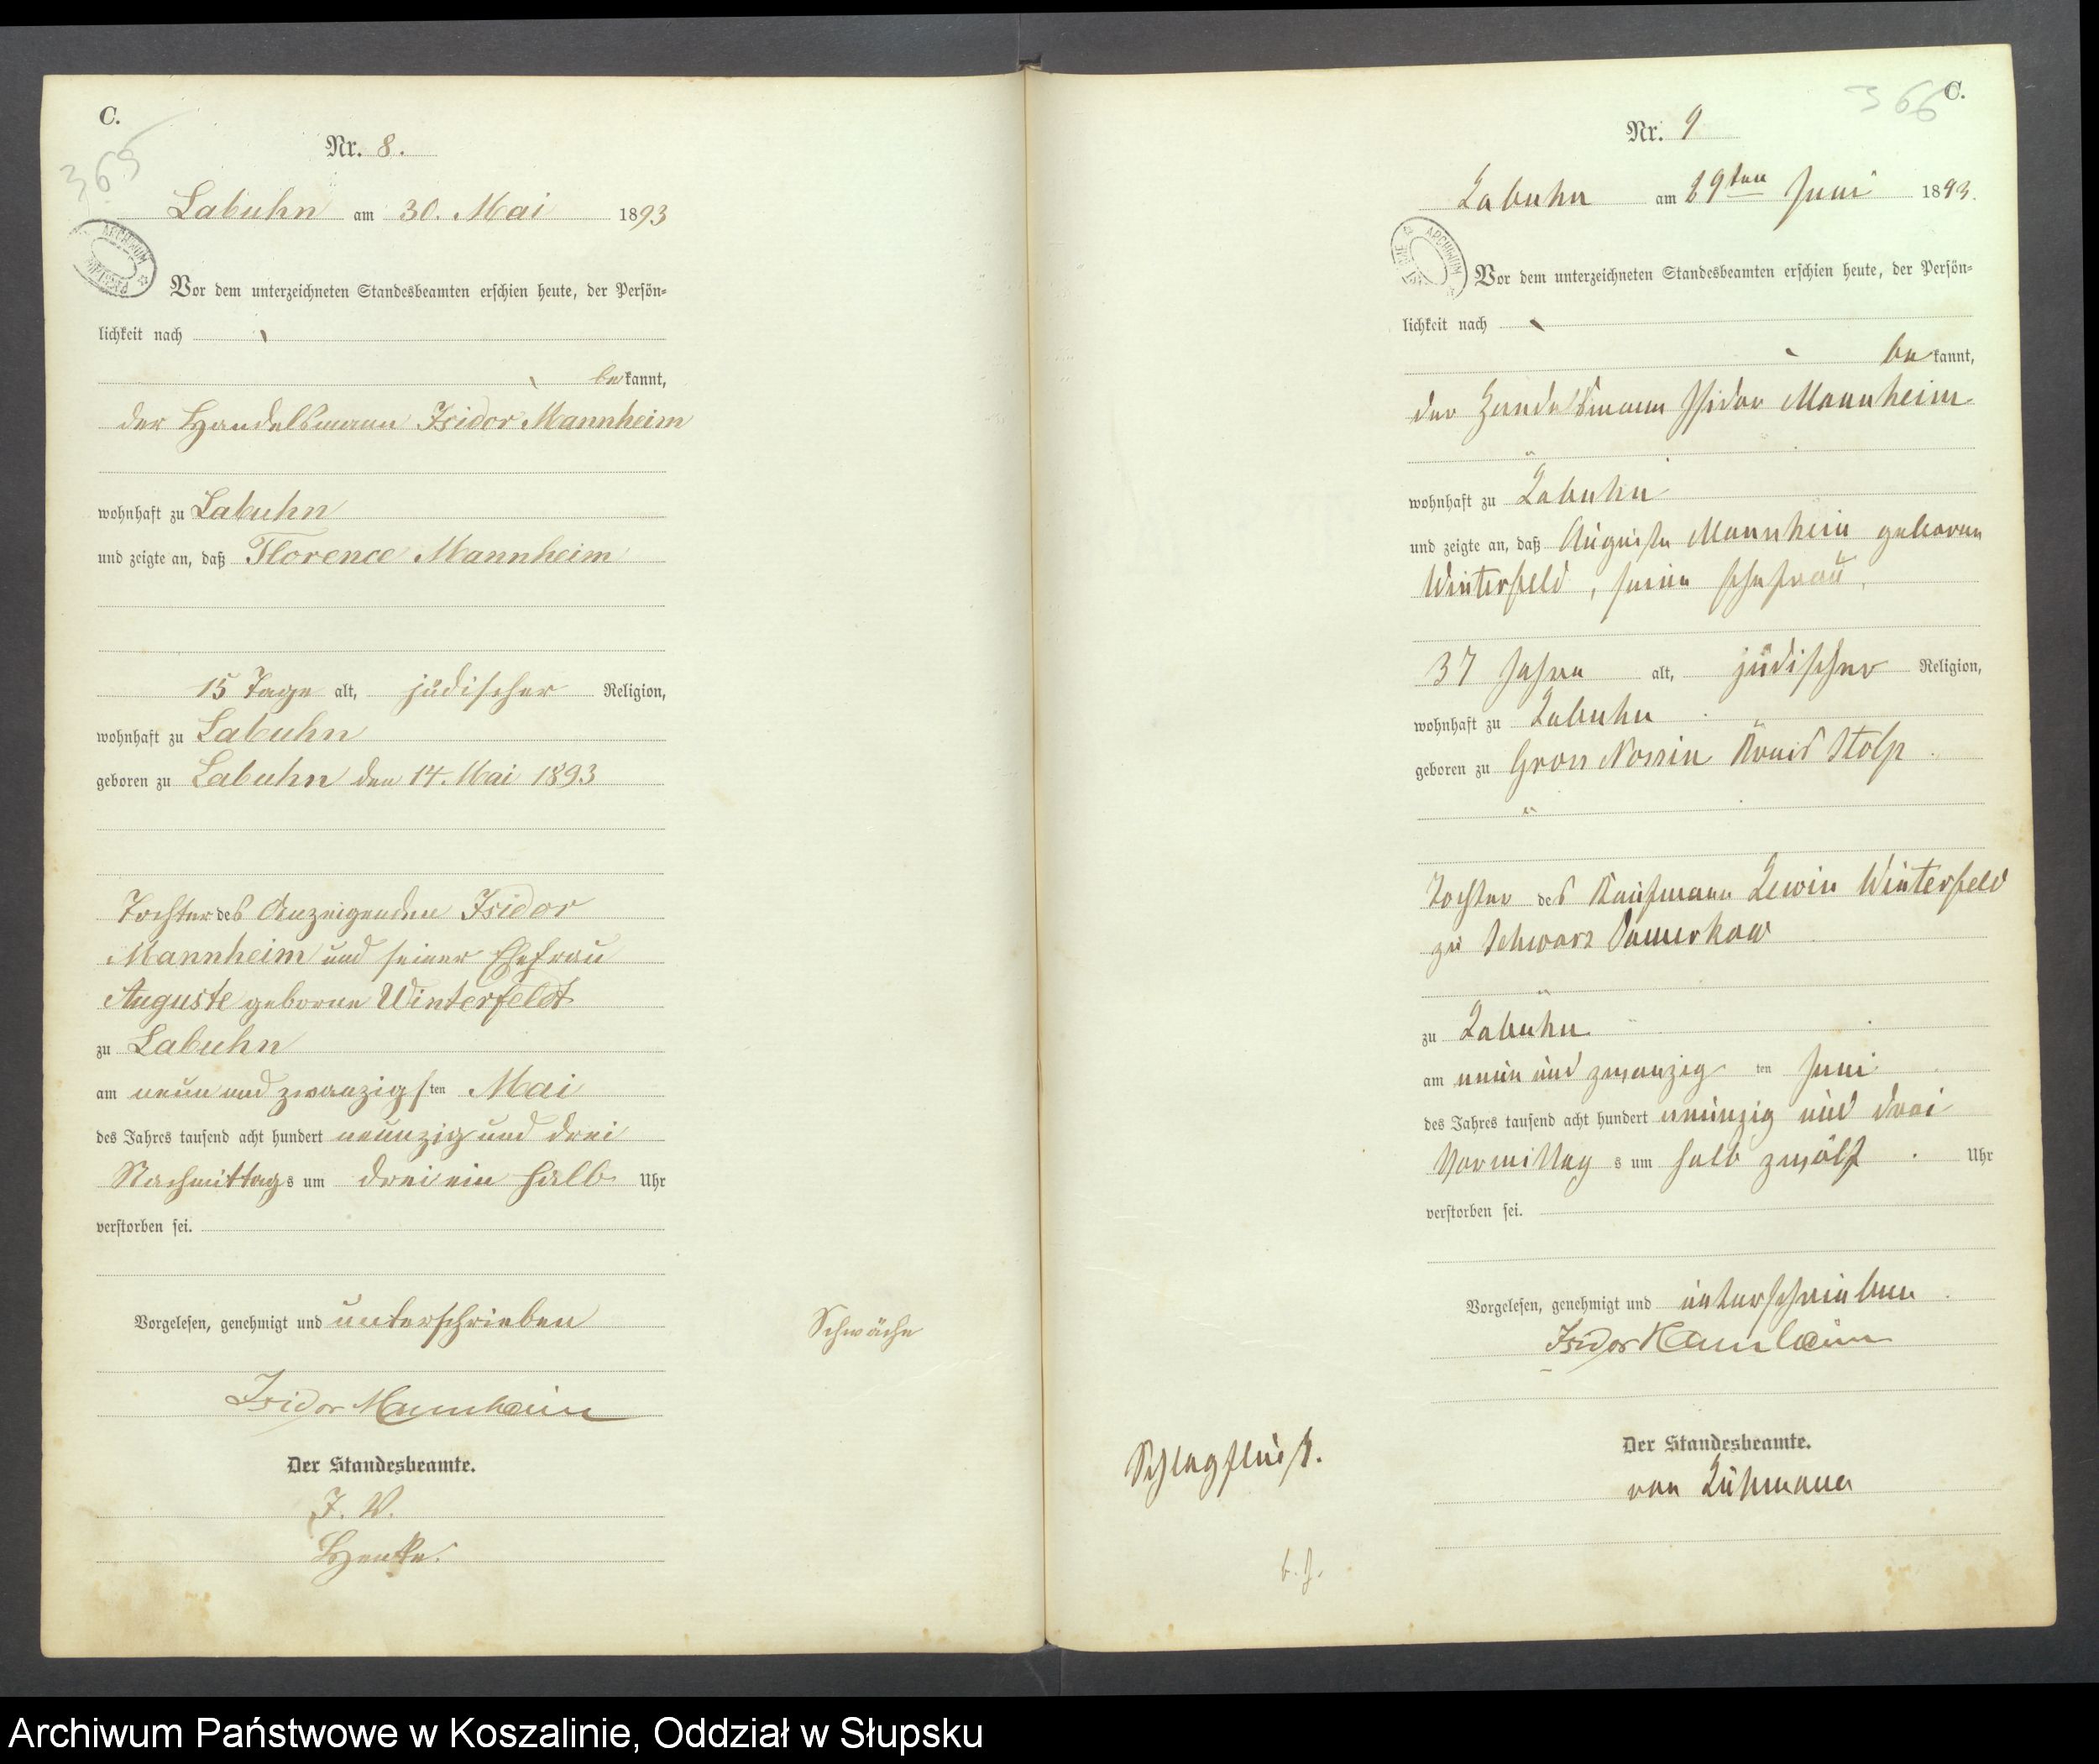 C.
365
Nr. 8.
Labuhn am 30. Mai 1893
ARCHIWUM
Vor dem unterzeichneten Standesbeamten erschien heute, der Persön-
lichkeit nach
bekannt,
der Handelsmann Isidor Mannheim
wohnhaft zu Labuhn
und zeigte an, daß Florence Mannheim
15 Tage alt, jüdischer Religion,
wohnhaft zu Labuhn
geboren zu Labuhn den 14. Mai 1893
Tochter des Anzeigenden Isidor
Mannheim und seiner Ehefrau
Auguste geborne Winterfeldt
zu Labuhn
am neun und zwanzigsten Mai
des Jahres tausend acht hundert neunzig und drei
Nachmittags um drei ein halb Uhr
verstorben sei.
Vorgelesen, genehmigt und unterschrieben
Isidor Mannheim
Der Standesbeamte.
I. V.
Henke.
Schwäche
C.
366
Nr. 9
Labuhn am 29ten Juni 1893.
ARCHIWUM
Vor dem unterzeichneten Standesbeamten erschien heute, der Persön-
lichkeit nach
bekannt,
der Handelsmann Isidor Mannheim
wohnhaft zu Labuhn
und zeigte an, daß Auguste Mannheim geborene
Winterfeld, seine Ehefrau,
37 Jahre alt, jüdischer Religion,
wohnhaft zu Labuhn
geboren zu Gross Nossin Kreis Stolp
Tochter des Kaufmann Lewin Winterfeld
zu Schwarz Damerkow
zu Labuhn
am neun und zwanzig ten Juni
des Jahres tausend acht hundert neunzig und drei
Vormittag s um halb zwölf Uhr
verstorben sei.
Vorgelesen, genehmigt und unterschrieben
Isidor Mannheim
Der Standesbeamte.
von Lühmann
Schlagfluß.
Archiwum Państwowe w Koszalinie, Oddział w Słupsku